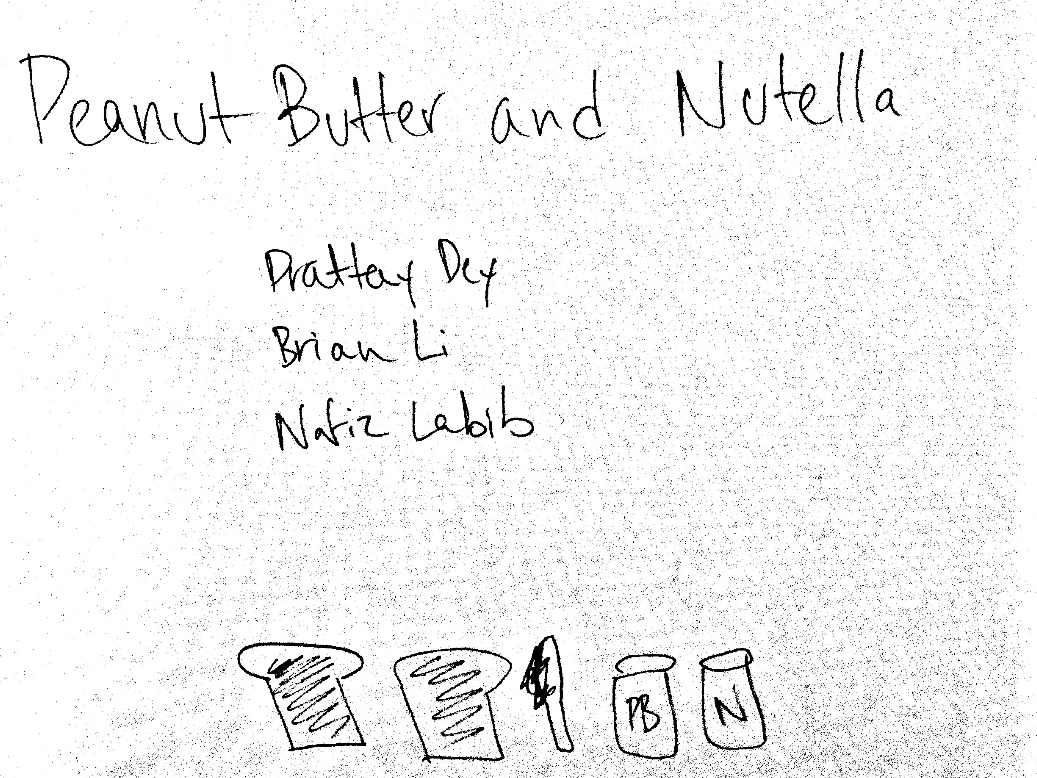 Peanut Butter and Nutella
Prattay Dey
Brian Li
Nafiz Labib
PB
N